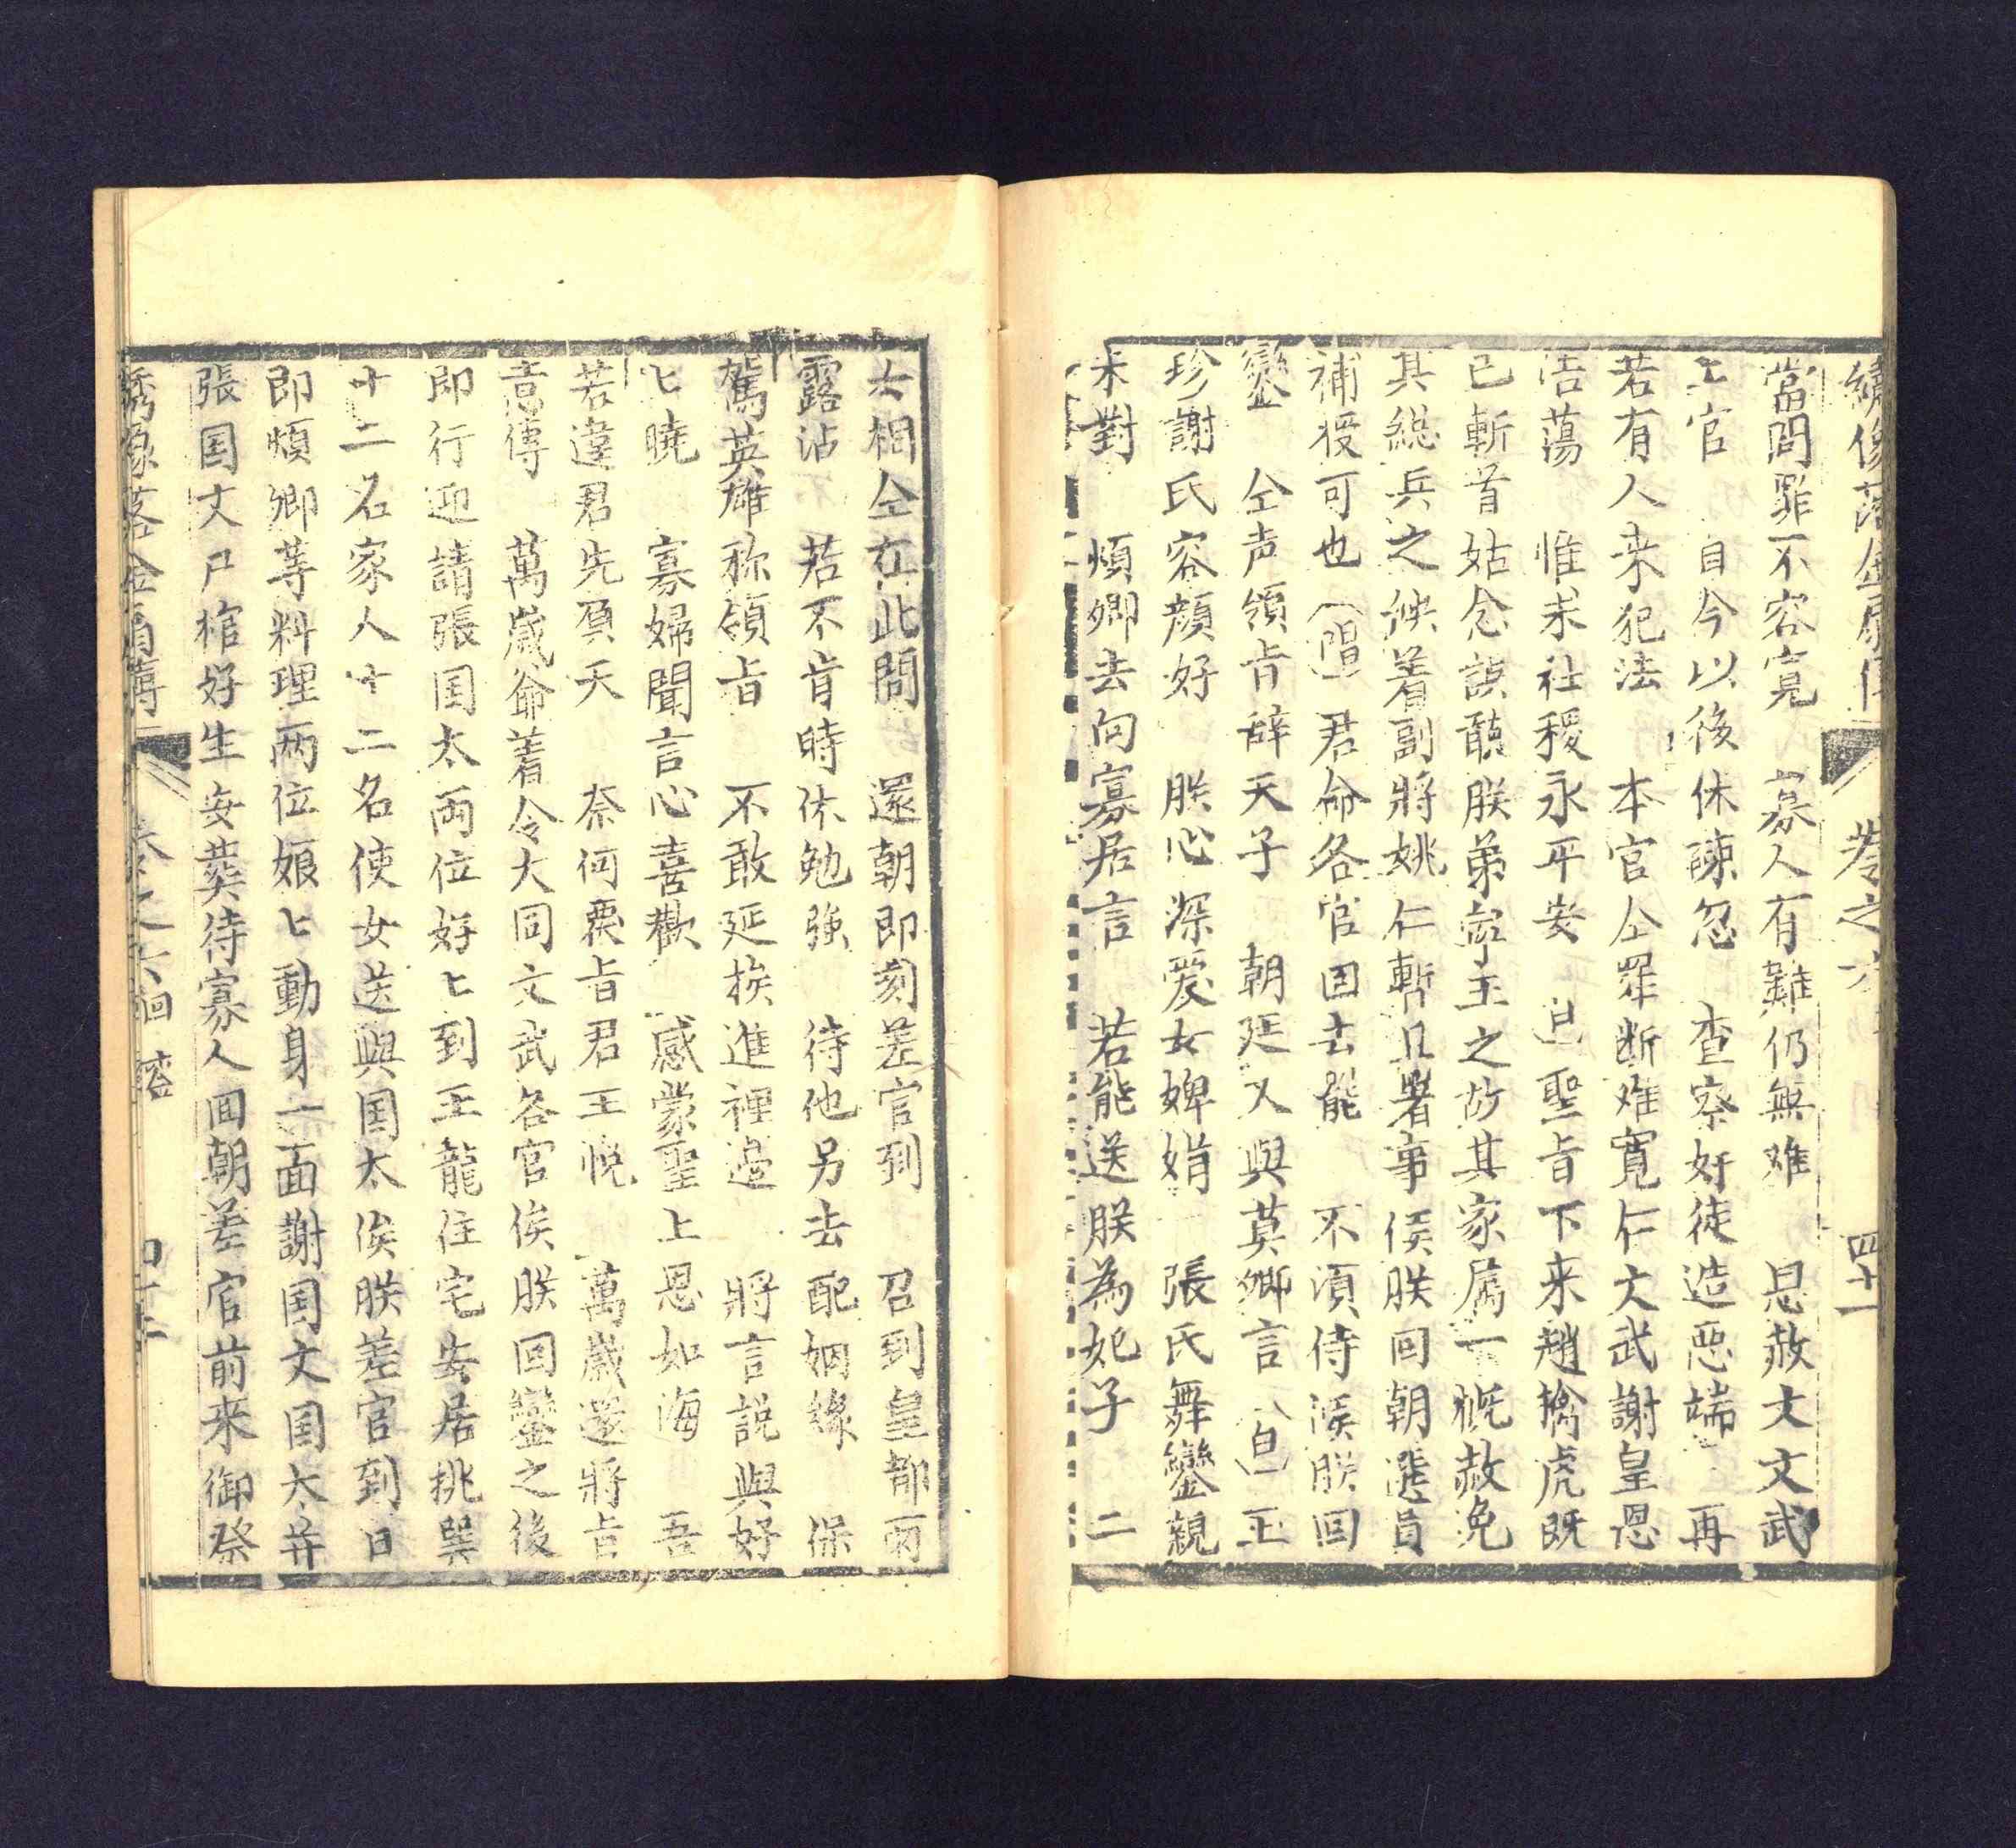 繡像落金扇傳 卷之六 四十一
當問罪不容寬 寡人有難仍無难 恩赦文文武
上官 自今以後休疎忽 查察奸徒造惡端 再
若有人来犯法 本官仝罪断难寬仁 文武謝皇恩
浩蕩 惟求社稷永平安 白 聖旨下来趙擒虎既
已斬首姑念誤聽朕弟寧王之故其家属一概赦免
其縂兵之缺着副將姚仁暫且署事候朕回朝選員
補授可也 唱 君命各官回去能 不湏侍候朕回
鑾 仝声領旨辞天子 朝廷又與莫卿言 白 王
珍謝氏容顏好 朕心深爱女婢娟 張氏舞鑾親
未對 煩卿去向寡居言 若能送朕為妃子 二
女相仝在此間 還朝即刻差官到 召到皇都雨
露沾 若不肯時休勉強 待他另去配姻緣 保
駕英雄称領旨 不敢延挨進裡邊 將言説與好
七曉 寡婦聞言心喜歡 感蒙聖上恩如海 吾
若違君先負天 奈何禀旨君王悅 萬歲還將旨
意傳 萬歲爺着令大同文武各官俟朕回鑾之後
即行迎請張国太兩位好七到王龍住宅安居挑巽
十二名家人十二名使女送與国太俟朕差官到日
即煩卿等料理两位娘七動身一面謝国文国太并
張国丈尸棺好生安葬待寡人回朝差官前来御祭
綉像落金扇傳 卷之六回